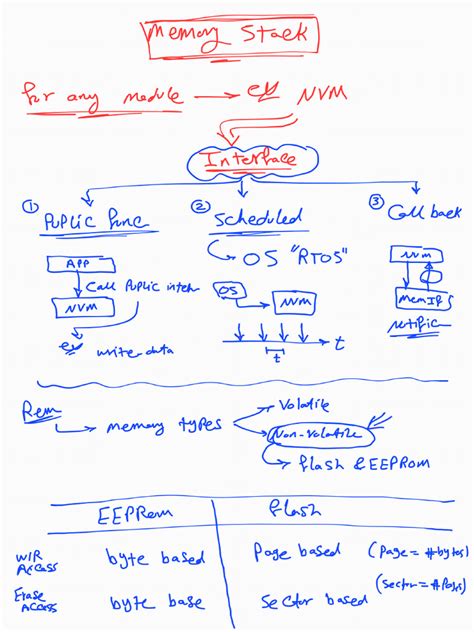 Memory Stack
for any module → ex NVM
Interface
① Puplic func
② Scheduled
③ Call back
OS "RTOS"
APP
Call Puplic inter
NVM
ex write data
OS → NVM
t
t
NVM
MemIf
notific
Rem
memory types
Volatile
Non-volatile
flash & EEPROM
EEPRom
flash
W/R Access
byte based
Page based (Page = #bytes)
Erase Access
byte base
Sector based (Sector = #Pages)